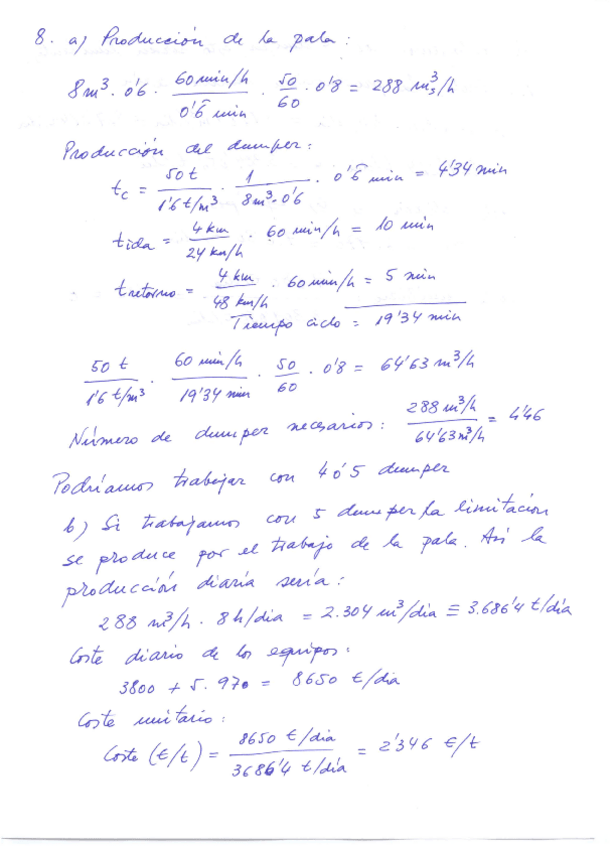 8. a) Producción de la pala:
8m³ · 0'6 · 60 min/h / 0'6̄ min · 50/60 · 0'8 = 288 m³s/h
Producción del dumper:
tc = 50 t / 1'6 t/m³ · 1 / 8m³·0'6 · 0'6̄ min = 4'34 min
tida = 4 km / 24 km/h · 60 min/h = 10 min
tretorno = 4 km / 48 km/h · 60 min/h = 5 min
Tiempo ciclo = 19'34 min
50 t / 1'6 t/m³ · 60 min/h / 19'34 min · 50/60 · 0'8 = 64'63 m³/h
Número de dumper necesarios: 288 m³/h / 64'63 m³/h = 4'46
Podríamos trabajar con 4 ó 5 dumper
b) Si trabajamos con 5 dumper la limitación
se produce por el trabajo de la pala. Así la
producción diaria sería:
288 m³/h · 8 h/dia = 2.304 m³/dia ≡ 3.686'4 t/día
Coste diario de los equipos:
3800 + 5 · 970 = 8650 €/dia
Coste unitario:
Coste (€/t) = 8650 €/dia / 3686'4 t/día = 2'346 €/t